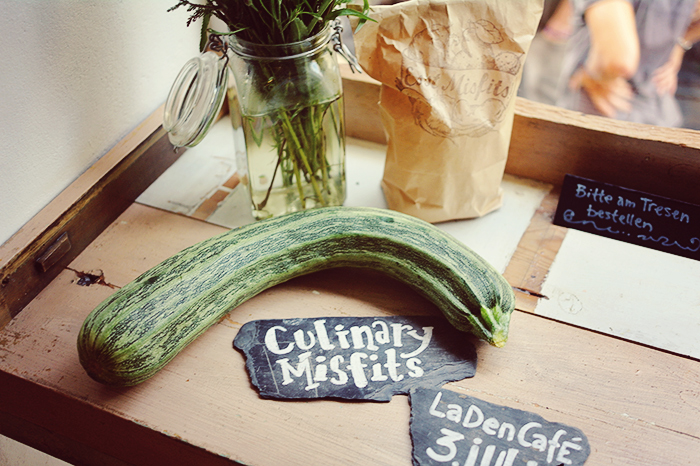 Misfits
Bitte am Tresen
bestellen
Culinary
Misfits
LaDenCafé
3. Juli